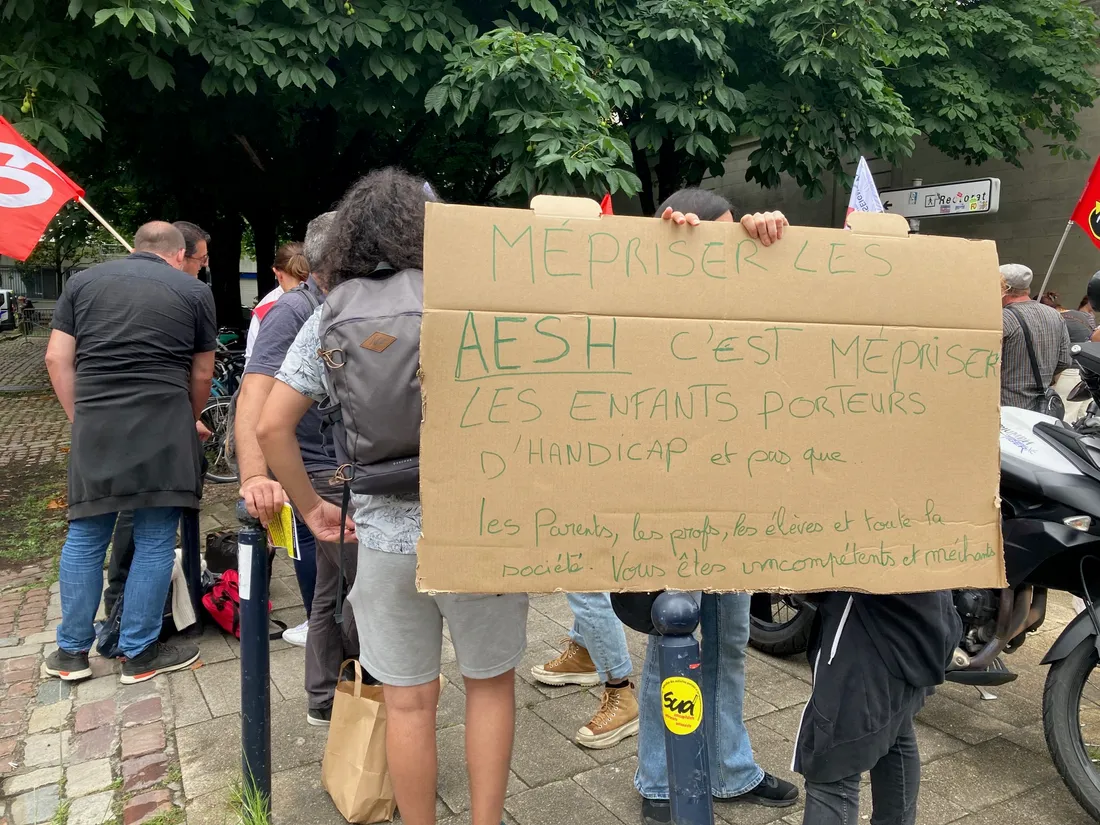 MÉPRISER LES
AESH C'EST MÉPRISER
LES ENFANTS PORTEURS
D'HANDICAP et pas que
les Parents, les profs, les élèves et toute la
société. Vous êtes incompétents et méchants
Rectorat
Sud